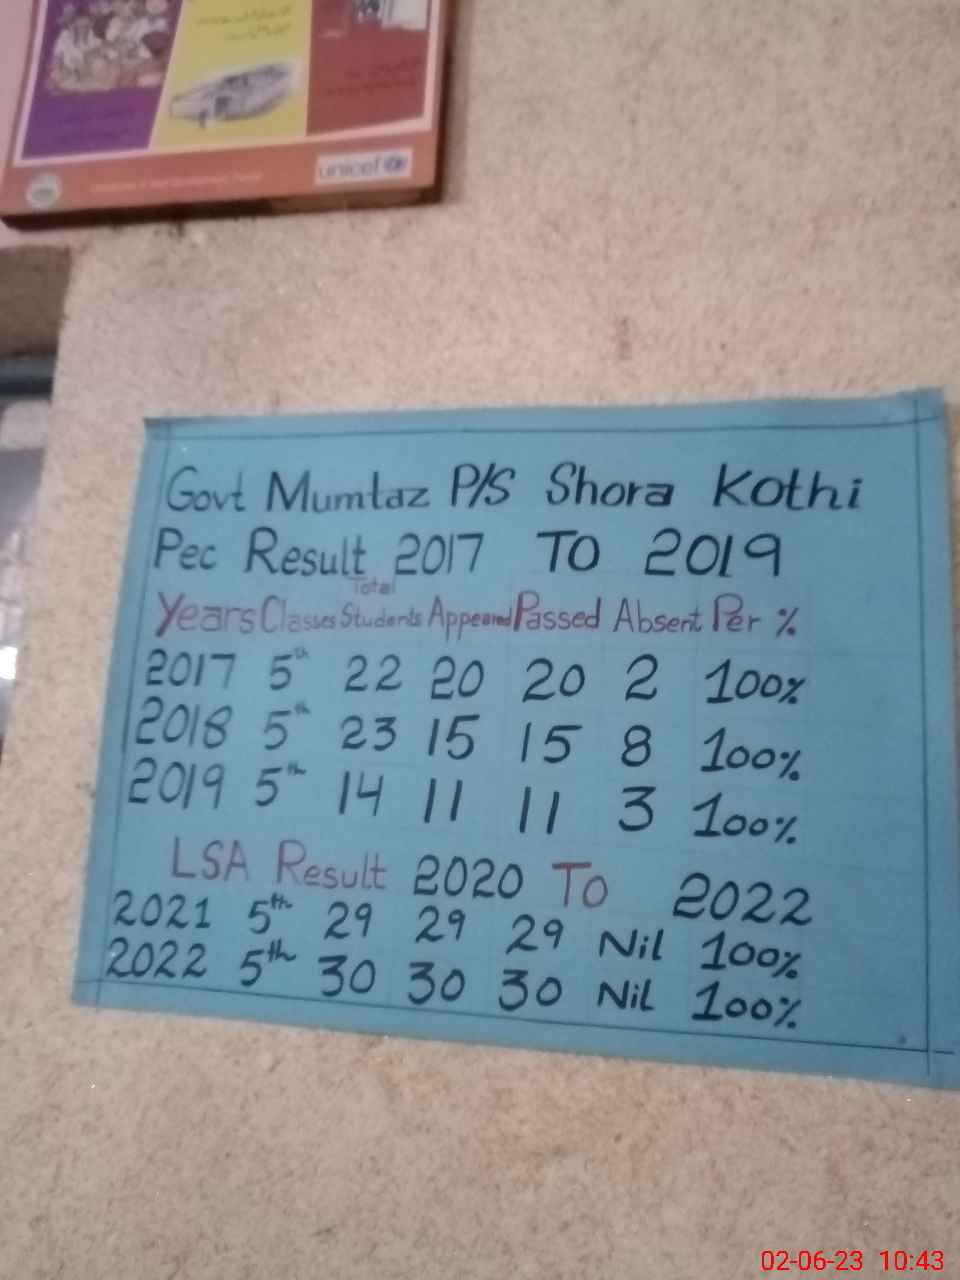 unicef
Govt Mumtaz P/S Shora Kothi
Pec Result 2017 TO 2019
Years Classes Total Students Appeared Passed Absent Per %
2017 5th 22 20 20 2 100%
2018 5th 23 15 15 8 100%
2019 5th 14 11 11 3 100%
LSA Result 2020 To 2022
2021 5th 29 29 29 Nil 100%
2022 5th 30 30 30 Nil 100%
02-06-23 10:43